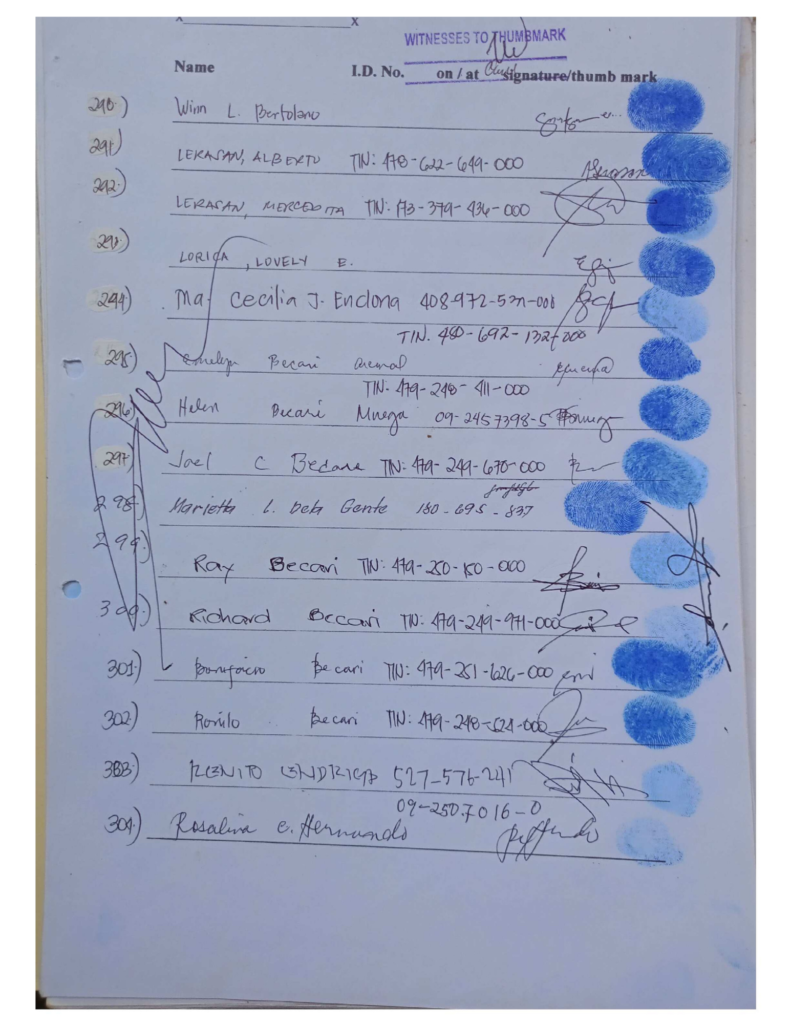 x x
WITNESSES TO THUMBMARK
Name I.D. No. on / at signature/thumb mark
290.) Winn L. Bertolano
291.) LERASAN, ALBERTO TIN: 478-622-649-000
292.) LERASAN, MERCEDITA TIN: 173-379-436-000
293.) LORICA, LOVELY E.
294.) Ma. Cecilia J. Enclona 408-972-521-000
TIN. 480-692-132-000
295.) Becari
TIN: 479-248-411-000
296.) Helen Becari 09-2457398-5
297.) Joel C Becari TIN: 479-249-670-000
298.) Marietta L. Dela Gente 180-695-837
299.) Ray Becari TIN: 479-250-150-000
300.) Richard Becari TIN: 479-249-971-000
301.) Bonifacio Becari TIN: 479-251-626-000
302.) Romilo Becari TIN: 479-248-524-000
303.) RENITO 527-576-241
09-2507016-0
304.) Rosalina C. Hernando